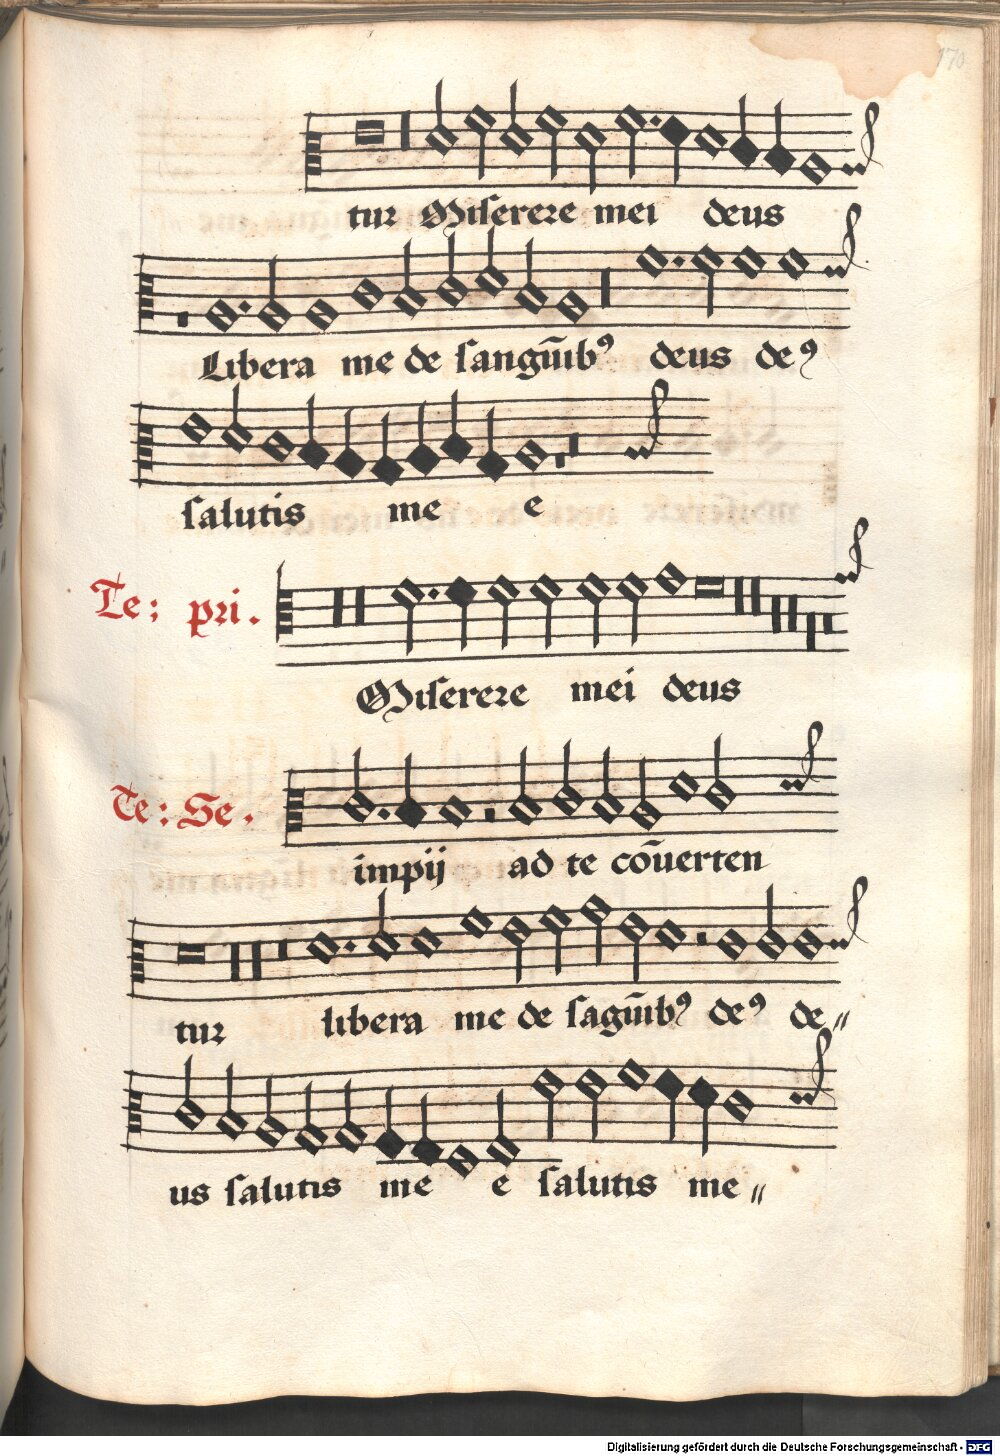 170
tur Miserere mei deus
Libera me de sangūibꝰ deus deꝰ
salutis me e
Te: pri.
Miserere mei deus
Te: Se.
impij ad te cōuerten
tur libera me de sagūibꝰ deꝰ de〃
us salutis me e salutis me〃
Digitalisierung gefördert durch die Deutsche Forschungsgemeinschaft - DFG